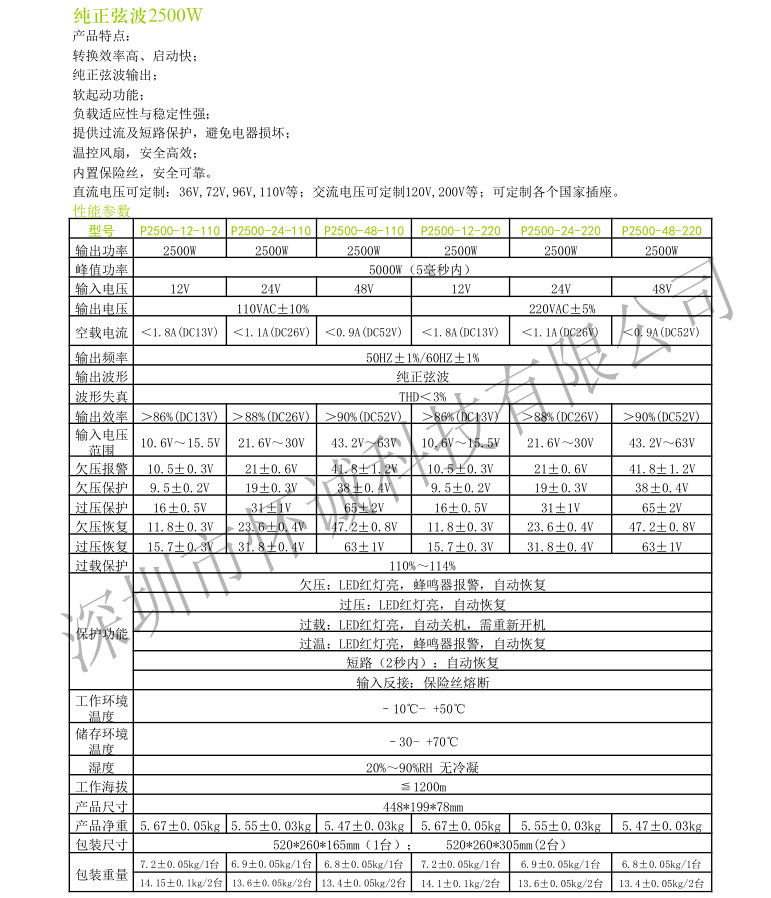 纯正弦波2500W
产品特点：
转换效率高、启动快；
纯正弦波输出；
软起动功能；
负载适应性与稳定性强；
提供过流及短路保护，避免电器损坏；
温控风扇，安全高效；
内置保险丝，安全可靠。
直流电压可定制：36V,72V,96V,110V等；交流电压可定制120V,200V等；可定制各个国家插座。
性能参数
型号 P2500-12-110 P2500-24-110 P2500-48-110 P2500-12-220 P2500-24-220 P2500-48-220
输出功率 2500W 2500W 2500W 2500W 2500W 2500W
峰值功率 5000W（5毫秒内）
输入电压 12V 24V 48V 12V 24V 48V
输出电压 110VAC±10% 220VAC±5%
空载电流 ＜1.8A(DC13V) ＜1.1A(DC26V) ＜0.9A(DC52V) ＜1.8A(DC13V) ＜1.1A(DC26V) ＜0.9A(DC52V)
输出频率 50HZ±1%/60HZ±1%
输出波形 纯正弦波
波形失真 THD＜3%
输出效率 ＞86%(DC13V) ＞88%(DC26V) ＞90%(DC52V) ＞86%(DC13V) ＞88%(DC26V) ＞90%(DC52V)
输入电压
范围 10.6V～15.5V 21.6V～30V 43.2V～63V 10.6V～15.5V 21.6V～30V 43.2V～63V
欠压报警 10.5±0.3V 21±0.6V 41.8±1.2V 10.5±0.3V 21±0.6V 41.8±1.2V
欠压保护 9.5±0.2V 19±0.3V 38±0.4V 9.5±0.2V 19±0.3V 38±0.4V
过压保护 16±0.5V 31±1V 65±2V 16±0.5V 31±1V 65±2V
欠压恢复 11.8±0.3V 23.6±0.4V 47.2±0.8V 11.8±0.3V 23.6±0.4V 47.2±0.8V
过压恢复 15.7±0.3V 31.8±0.4V 63±1V 15.7±0.3V 31.8±0.4V 63±1V
过载保护 110%～114%
保护功能 欠压：LED红灯亮，蜂鸣器报警，自动恢复
过压：LED红灯亮，自动恢复
过载：LED红灯亮，自动关机，需重新开机
过温：LED红灯亮，蜂鸣器报警，自动恢复
短路（2秒内）：自动恢复
输入反接：保险丝熔断
工作环境
温度 －10℃- +50℃
储存环境
温度 －30- +70℃
湿度 20%～90%RH 无冷凝
工作海拔 ≦1200m
产品尺寸 448*199*78mm
产品净重 5.67±0.05kg 5.55±0.03kg 5.47±0.03kg 5.67±0.05kg 5.55±0.03kg 5.47±0.03kg
包装尺寸 520*260*165mm（1台）； 520*260*305mm(2台）
包装重量 7.2±0.05kg/1台 6.9±0.05kg/1台 6.8±0.05kg/1台 7.2±0.05kg/1台 6.9±0.05kg/1台 6.8±0.05kg/1台
14.15±0.1kg/2台 13.6±0.05kg/2台 13.4±0.05kg/2台 14.1±0.1kg/2台 13.6±0.05kg/2台 13.4±0.05kg/2台
深圳市怀诚科技有限公司